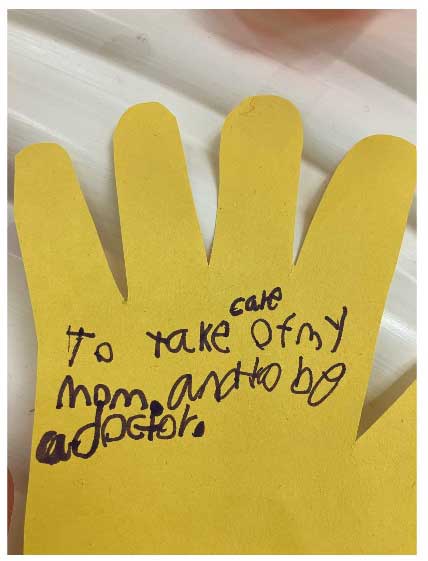 To take care of my
mom. and to be
a doctor.